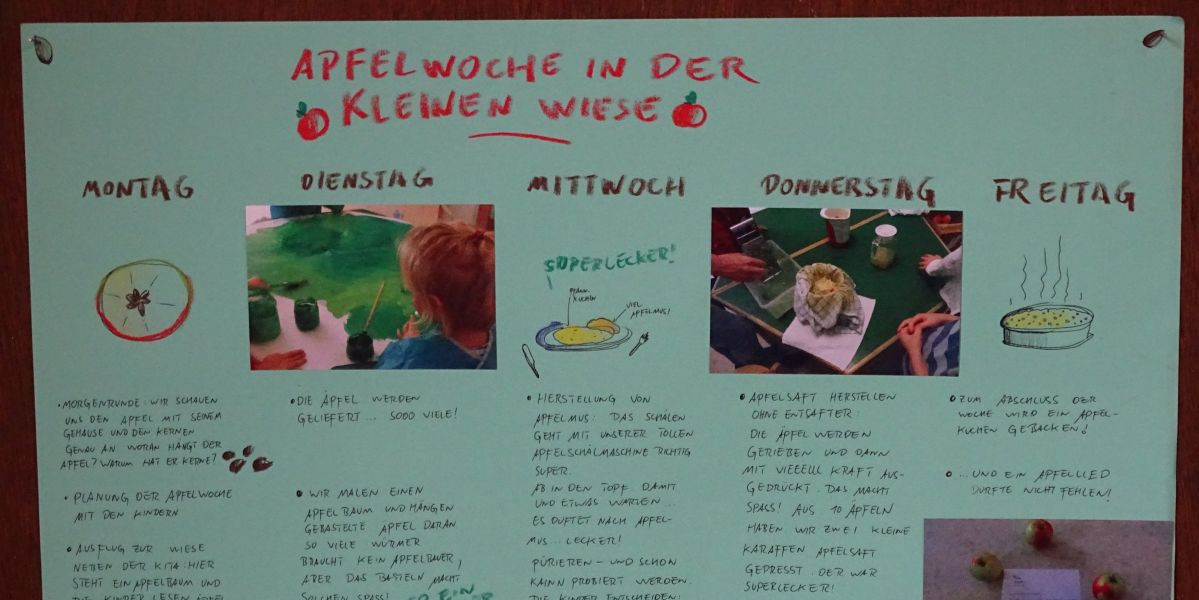 APFELWOCHE IN DER
KLEINEN WIESE
MONTAG
• MORGENRUNDE: WIR SCHAUEN
UNS DEN APFEL MIT SEINEM
GEHÄUSE UND DEN KERNEN
GENAU AN. WORAN HÄNGT DER
APFEL? WARUM HAT ER KERNE?
• PLANUNG DER APFELWOCHE
MIT DEN KINDERN
• AUSFLUG ZUR WIESE
NEBEN DER KITA: HIER
STEHT EIN APFELBAUM UND
DIE KINDER LESEN ÄPFEL
DIENSTAG
• DIE ÄPFEL WERDEN
GELIEFERT... SOOO VIELE!
• WIR MALEN EINEN
APFELBAUM UND HÄNGEN
GEBASTELTE ÄPFEL DARAN
SO VIELE WÜRMER
BRAUCHT KEIN APFELBAUER,
ABER DAS BASTELN MACHT
SOLCHEN SPASS!
EIN
MITTWOCH
SUPERLECKER!
KUCHEN
VIEL
APFELMUS!
• HERSTELLUNG VON
APFELMUS: DAS SCHÄLEN
GEHT MIT UNSERER TOLLEN
APFELSCHÄLMASCHINE RICHTIG
SUPER.
AB IN DEN TOPF DAMIT
UND ETWAS WARTEN...
ES DUFTET NACH APFEL-
MUS... LECKER!
PÜRIEREN - UND SCHON
KANN PROBIERT WERDEN.
DIE KINDER ENTSCHEIDEN:
DONNERSTAG
• APFELSAFT HERSTELLEN
OHNE ENTSAFTER:
DIE ÄPFEL WERDEN
GERIEBEN UND DANN
MIT VIEEELL KRAFT AUS-
GEDRÜCKT. DAS MACHT
SPASS! AUS 10 ÄPFELN
HABEN WIR ZWEI KLEINE
KARAFFEN APFELSAFT
GEPRESST. DER WAR
SUPERLECKER!
FREITAG
• ZUM ABSCHLUSS DER
WOCHE WIRD EIN APFEL-
KUCHEN GEBACKEN!
• ...UND EIN APFELLIED
DURFTE NICHT FEHLEN!